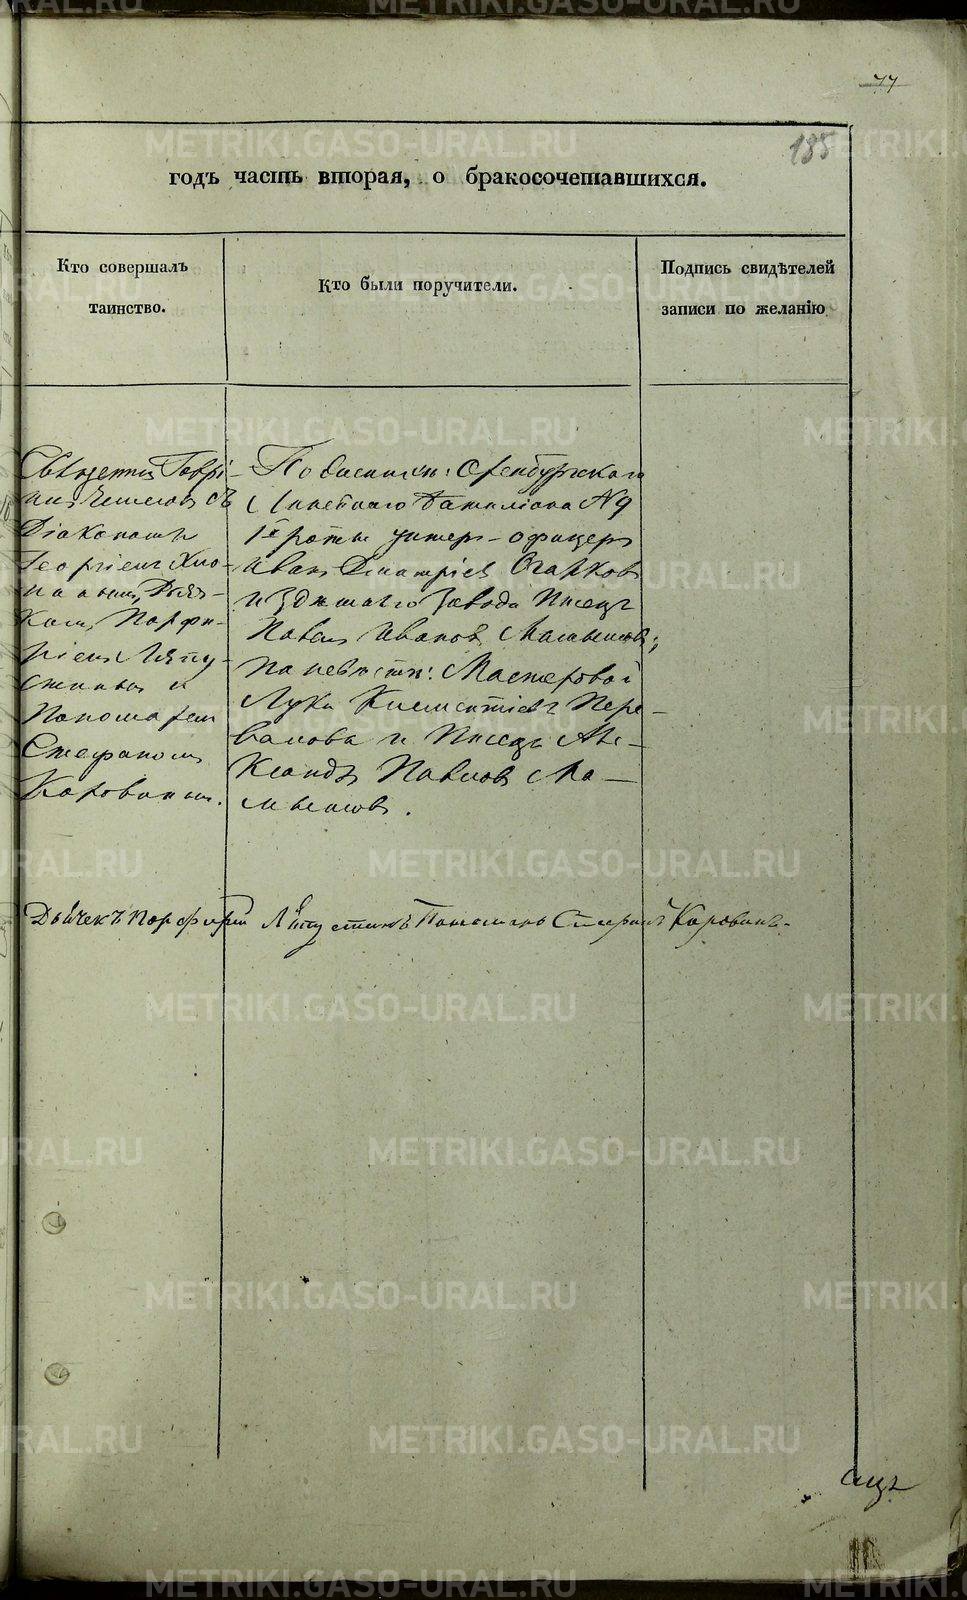 77
185
годъ часть вторая, о бракосочетавшихся.
Кто совершалъ
таинство.
Кто были поручители.
Подпись свидѣтелей
записи по желанію
Священник Гаври-
илъ съ
Діакономъ
Георгіемъ
Дьяч-
комъ Порфи-
ріемъ Ляпу-
стинымъ и
Пономаремъ
Стефаномъ
Коровинымъ.
По женихѣ: Оренбургскаго
Линейнаго Баталіона № 9
1й роты унтер-офицеръ
Иванъ Дмитріевъ Огарковъ
и Здѣшняго Завода Писецъ
Павелъ Ивановъ
По невѣстѣ: Мастеровой
Лука Климентіевъ Пере-
валовъ и Писецъ Але-
ксандръ Павловъ Ма-
Дьячекъ Порфирій Ляпустинъ Пономарь Стефанъ Коровинъ.
METRIKI.GASO-URAL.RU